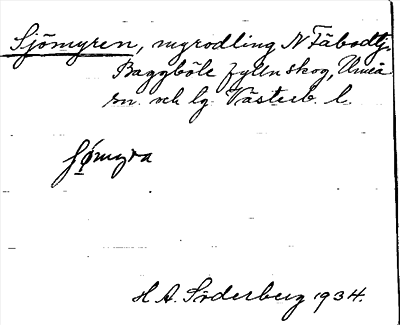 Sjömyren, nyrodling N Fäbodtj.
Baggböle fylln skog, Umeå
sn. och lg. Västerb. l.
sjømyra
H. A. Söderberg 1934.